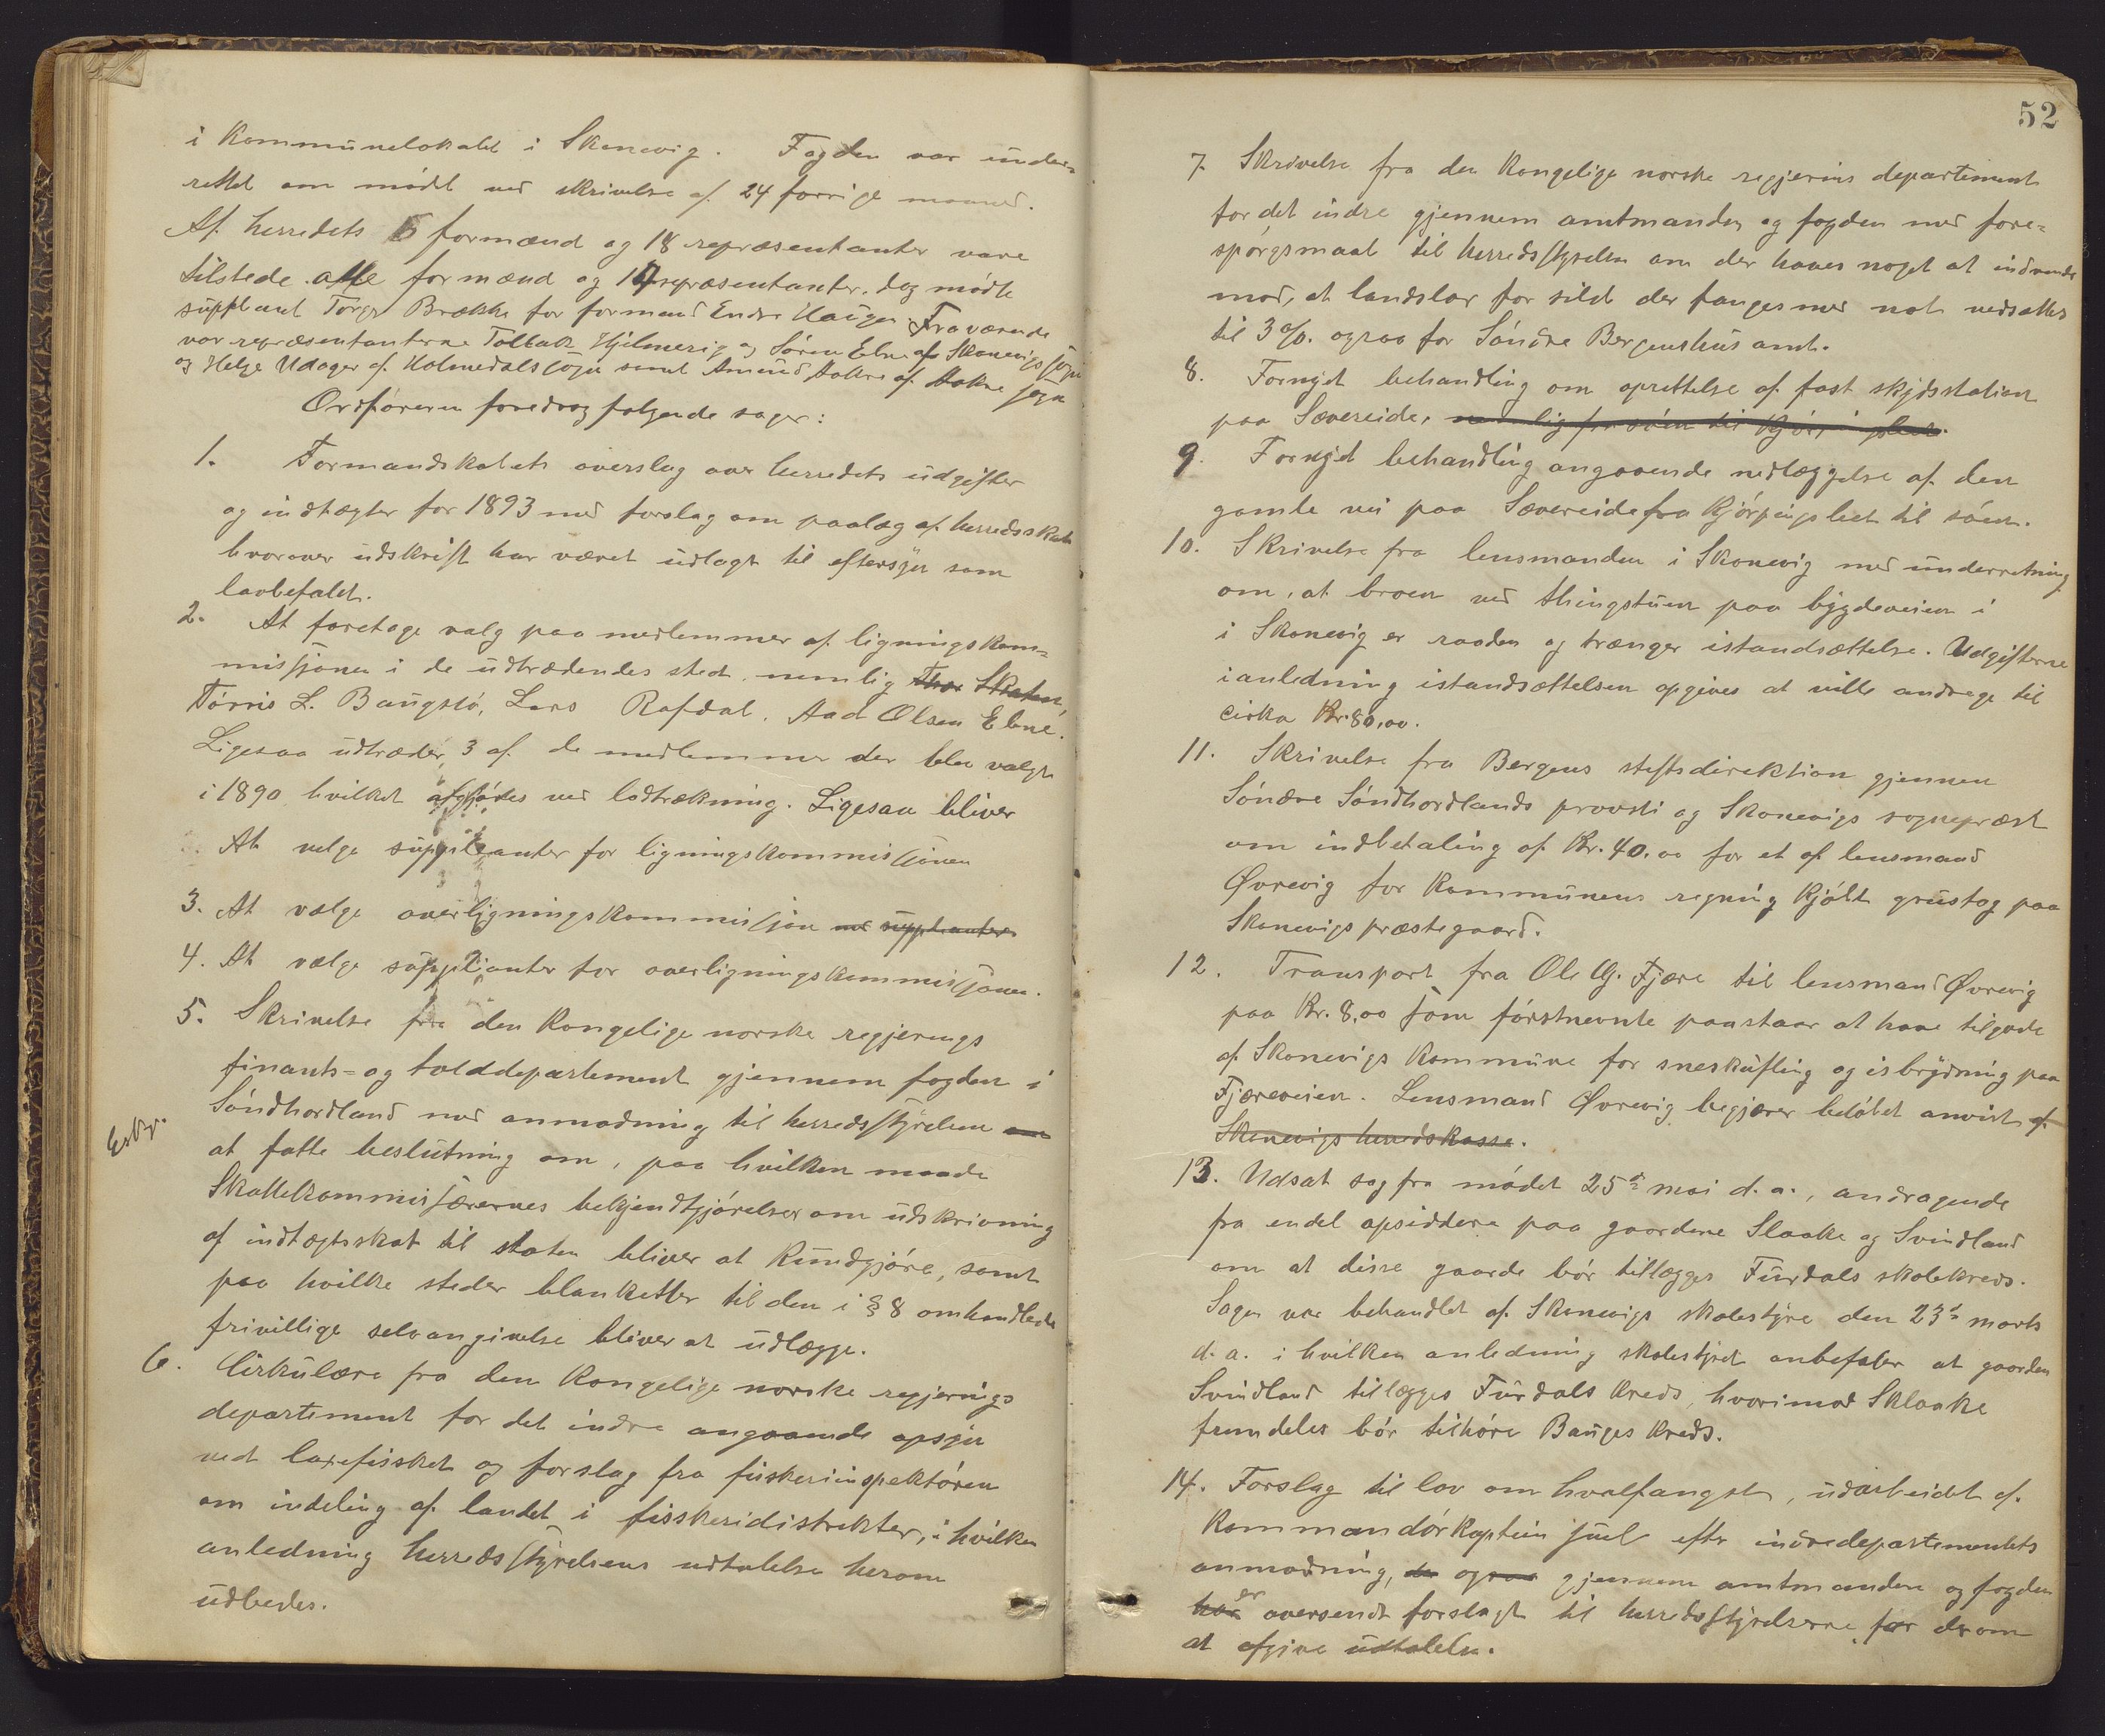 i Kommunelokalet i Skonevig. Fogden var under-
rettet om mödet ved skrivelse af 24 forrige maaned.
Af herredets 6 formænd og 18 repræsentanter vare
tilstede alle formænd og 14 repræsentanter. dog mödte
suppleant Torger Brække for formand Endre Haugen. Fraværende
var repræsentanterne Tolleik Hjelmevig og Sören Ebne af Skonevigs sogn
og Helge Udager af Holmedals sogn samt Amund Aakre af Aakre sogn
Ordföreren foredrog folgende sager:
1. Formandskabets overslag over herredets udgifter
og indtægter for 1893 med forslag om paalæg af herredsskat
hvorover udskrift har været udlagt til eftersyn som
lovbefalet.
2. At foretage valg paa medlemmer af ligningskom-
missjonen i de udtrædendes sted. nemlig
Törris L. Baugstö, Lars Rafdal, Aad Olsen Ebne.
Ligesaa udtræder 3 af de medlemmer der blev valgt
i 1890 hvilket afgjöres ved lodtrækning. Ligesaa bliver
At velge suppleanter for ligningskommissjonen
3. At vælge overligningskommissjon med suppleanter
4. At vælge suppleanter for overligningskommissjonen.
5. Skrivelse fra den Kongelige norske regjerings
finants- og tolddepartement gjennem fogden i
Söndhordland med anmodning til herredsstyrelsen om
at fatte beslutning om, paa hvilken maade
Skattekommissærernes bekjendtgjörelser om udskrivning
af indtægtsskat til staten bliver at Kundgjöre, samt
paa hvilke steder blanketter til den i § 8 omhandlede
frivillige selvangivelse bliver at udlægge.
6. Cirkulære fra den Kongelige norske regjerings
departement for det indre angaaende opsyn
ved laxefisket og forslag fra fiskeriinspektören
om indeling af landet i fisskeridistrikter, i hvilken
anledning herredsstyrelsens udtalelse herom
udbedes.
52
7. Skrivelse fra den Kongelige norske regjerins departement
for det indre gjennem amtmanden og fogden med fore-
spörgsmaal til herredsstyrelsen om der haves noget at indvende
mod, at landslov for sild der fanges med not nedsættes
til 3 %. ogsaa for Söndre Bergenshus amt.
8. Fornyet behandling om oprettelse af fast skydsstation
paa Sævereide,
9. Fornyet behandling angaaende nedlæggelse af den
gamle vei paa Sævereide fra Kjörpingsleet til söen.
10. Skrivelse fra lensmanden i Skonevig med underretning
om, at broen ved thingstuen paa bygdeveien i
i Skonevig er raaden og trænger istandsættelse. Udgifterne
i anledning istandsættelsen opgives at ville andrage til
cirka Kr. 80,00.
11. Skrivelse fra Bergens stiftsdirektion gjennem
Söndre Söndhordlands provsti og Skonevigs sogneprest
om indbetaling af Kr. 40,00 for et af lensmand
Øvrevig for Kommunens regning kjöbt grustag paa
Skonevigs præstegaard.
12. Transport fra Ole G. Fjære til lensmand Øvrevig
paa Kr. 8,00 som förstnevnte paastaar at have tilgode
af Skonevigs Kommune for sneskufling og isbrydning paa
Fjæreveien. Lensmand Øvrevig begjærer belöbet anvist af
Skonevigs herredskasse.
13. Udsat sag fra mödet 25de mai d. a., andragende
fra endel opsiddere paa gaardene Slaake og Svindland
om at disse gaarde bör tillægges Furdals skolekreds.
Sagen var behandlet af Skonevigs skolestyre den 23de marts
d. a. i hvilken anledning skolestyret anbefaler at gaarden
Svindland tillægges Furdals kreds, hvorimod Sklaake
fremdeles bör tilhöre Bauges kreds.
14. Forslag til lov om hvalfangst, udarbeidet af
Kommandörkaptein Juel efter indredepartementets
anmodning, der ogsaa gjennem amtmanden og fogden
har er oversendt forslagt til herredsstyrelserne for derom
at afgive udtalelse.